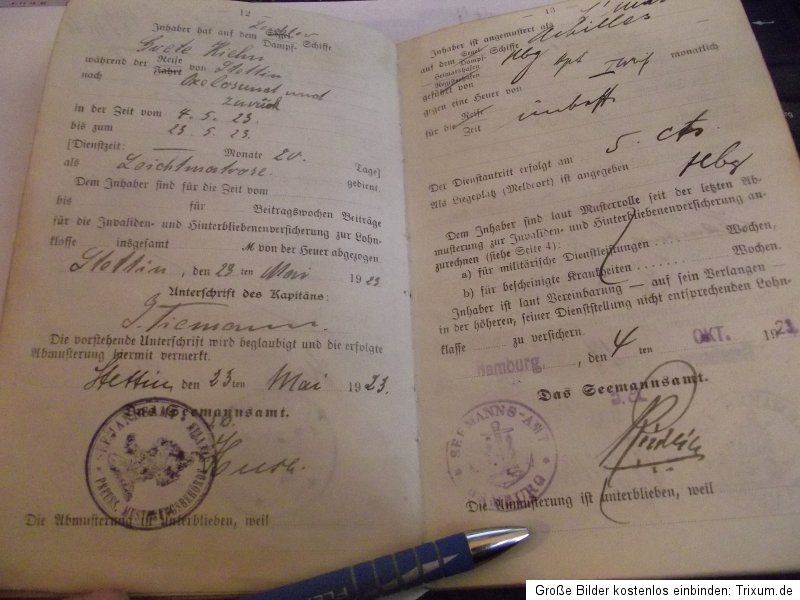 12
Inhaber hat auf dem Segel-
Dampf- Schiffe
Grete Hiehn
während der Reise
Fahrt von Stettin
nach Oxelösund und
zurück
in der Zeit vom 4. 5. 23.
bis zum 23. 5. 23.
[Dienstzeit: Monate 20. Tage]
als Leichtmatrose gedient.
Dem Inhaber sind für die Zeit vom
bis für Beitragswochen Beiträge
für die Invaliden- und Hinterbliebenenversicherung zur Lohn-
klasse insgesamt M von der Heuer abgezogen.
Stettin, den 23 ten Mai 1923
Unterschrift des Kapitäns:
J. Tiemann.
Die vorstehende Unterschrift wird beglaubigt und die erfolgte
Abmusterung hiermit vermerkt.
Stettin den 23 ten Mai 1923.
Das Seemannsamt.
SEEMANNSAMT
PREUSS. MUSTERUNGSBEHÖRDE
Die Abmusterung ist unterblieben, weil
13
Inhaber ist angemustert als
auf dem Segel-
Dampf- Schiffe Achilles
Heimatshafen
Registerhafen Hbg
geführt von
gegen eine Heuer von Tarif monatlich
für die Reise
Zeit unbest
Der Dienstantritt erfolgt am 5. cts.
Als Liegeplatz (Meldeort) ist angegeben Hbg
Dem Inhaber sind laut Musterrolle seit der letzten Ab-
musterung zur Invaliden- und Hinterbliebenenversicherung an-
zurechnen (siehe Seite 4):
a) für militärische Dienstleistungen Wochen,
b) für bescheinigte Krankheiten Wochen.
Inhaber ist laut Vereinbarung — auf sein Verlangen —
in der höheren, seiner Dienststellung nicht entsprechenden Lohn-
klasse zu versichern.
Hamburg, den 4 ten OKT. 1923
Das Seemannsamt.
SEEMANNS-AMT
HAMBURG
Die Abmusterung ist unterblieben, weil
Große Bilder kostenlos einbinden: Trixum.de